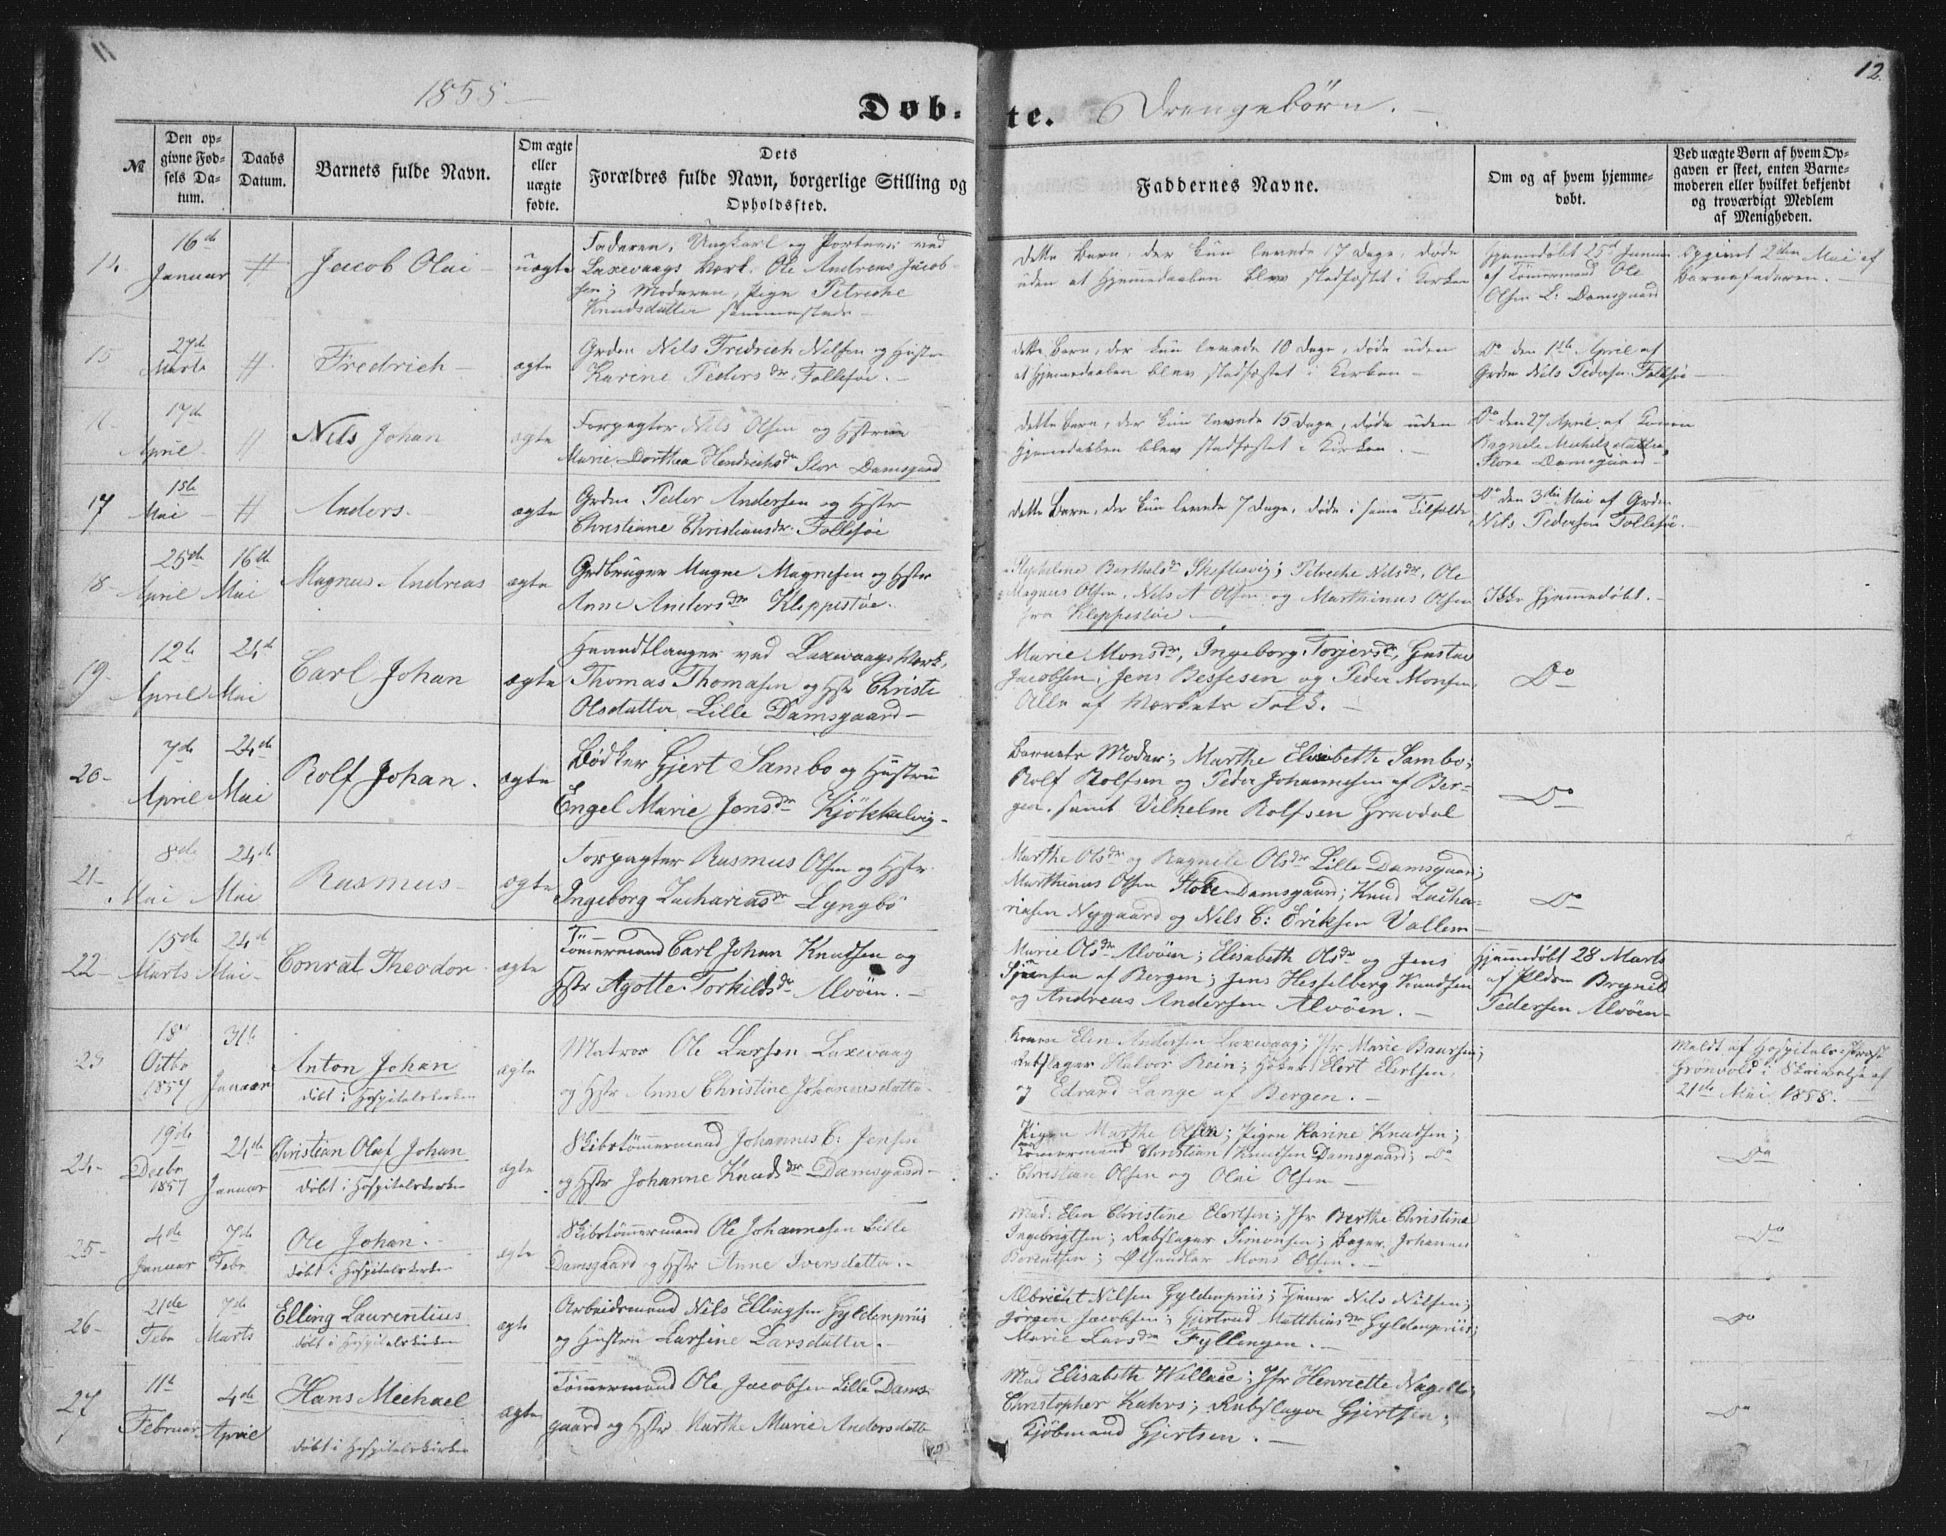 11
12.
1858.
Døb-
te. Drengebørn.
№
Den op-
givne Fød-
sels Da-
tum.
Daabs
Datum.
Barnets fulde Navn.
Om ægte
eller
uægte
fødte.
Dets
Forældres fulde Navn, borgerlige Stilling og
Opholdssted.
Faddernes Navne.
Om og af hvem hjemme-
døbt.
Ved uægte Børn af hvem Op-
gaven er skeet, enten Barne-
moderen eller hvilket bekjendt
og troværdigt Medlem
af Menigheden.
14.
16de
Januar
#
Jacob Olai
uægte
Faderen, Ungkarl og Portner ved
Laxevaags Værk. Ole Andreas Jacob-
sen; Moderen, Pige Petreche
Knudsdatter sammesteds
Dette Barn, der kun levede 17 Dage, døde
uden at Hjemmedaaben blev stadfæstet i Kirken
Hjemmedøbt 25de Januar
af Tømermand Ole
Olsen L: Damsgaard
Opgivet 2den Mai af
Barnefaderen.
15
27de
Marts
#
Fredrich
ægte
Grdm Nils Fredrich Nilsen og Hustru
Karine Peders Dr Follesøe.
Dette Barn, der kun levede 10 Dage, døde uden
at Hjemmedaaben blev stadfæstet i Kirken
Do den 1ste April af
Grdm Nils Pedersen Follesøe
17de
April
#
Nils Johan
ægte
Forpagter Nils Olsen og Hstrue
Marie Dorthea Hendrichs Dr Stor Damsgaard
Dette Barn, der kun levede 15 Dage, døde uden
Hjemmedaaben blev stadfæstet i Kirken.
Do den 27 April af Konen
Ragnele Michelsdatter
Store Damsgaard
17
1ste
Mai
#
Anders
ægte
Grdm Peder Andersen og Hstr
Christiane Christians Dr. Follesøe
Dette Barn, der kun levede 7 Dage, døde i samme Tilfælde
Do den 3die Mai af Grdm
Nils Pedersen Follesøe.
18
25de
April
16de
Mai
Magnus Andreas
ægte
Grdbruger Magne Magnesen og Hstr
Anne Anders Dr Kleppestøe.
Stepheline Berthels Dr Skiftesvig; Petreche Nils Dr, Ole
Magnus Olsen, Nils A Olsen og Marthinus Olsen
fra Kleppestøe
Ikke hjemmedøbt.
19
12te
April
24de
Mai
Carl Johan
ægte
Haandtlanger ved Laxevaags Værk,
Thomas Thomasen og Hstr Christi
Olsdatter Lille Damsgaard
Marie Mons Dr, Ingeborg Torjers Dr, Gustav
Jacobsen; Jens Bessesen og Peder Monsen,
Alle af Værkets Folk.
Do
20
7de
April
24de
Mai
Rolf Johan.
ægte
Bødker Gjert Sambo og Hustru
Engel Marie Jens Dr Kjøkkelvig
Barnets Moder; Marthe Elisabeth Sambo;
Rolf Rolfsen og Peder Johannesen af Ber-
gen, samt Vilhelm Rolfsen Gravdal
Do
21
8de
Mai
24de
Mai
Rasmus
ægte
Forpagter Rasmus Olsen og Hstr.
Ingeborg Zacharias Dr Lyngbø
Marthe Ols Dr og Ragnele Ols Dr Lille Damsgaard;
Marthinus Olsen Store Damsgaard; Knud Zacha-
riasen Nygaard og Nils C: Eriksen Vallem
Do
22
15de
Marts
24de
Mai
Conrat Theodor
ægte
Tømmermand Carl Johan Knutsen og
Hstr Agotte Torkilds Dr Alvøen.
Marie Ols Dr Alvøen; Elisabeth Ols Dr og Jens
af Bergen; Jens Hesselberg Knudsen
og Andreas Andersen Alvøen.
Hjemmedøbt 28 Marts
af Brynild
Pedersen Alvøen
23
18
Octbr
1857
31te
Januar
Anton Johan
døbt i Hospitalskirken
ægte
Matros Ole Larsen Laxevaag
og Hstr Anne Christine Johannesdatter
Konen Elen Andersen Laxevaag; Jfr Marie Baarsen;
Rebslager Halvor Rein; Elert Elertsen,
og Edvard Lange af Bergen.
Meldt af Hospitalspræst
Grønvold i Skrivelse af
21de Mai 1858.
24
19de
Decbr
1857
24de
Januar
Christian Oluf Johan
døbt i Hospitalskirken
ægte
Skibstømmermand Johannes C: Jensen
og Hstr Johanne Knuds Dr Damsgaard
Pigen Marthe Olsen; Pigen Karine Knudsen;
Tømmermand Christian Knudsen Damsgaard; Do
Christian Olsen og Olai Olsen
Do
25
4de
Januar
7de
Febr.
Ole Johan.
døbt i Hospitalskirken
ægte
Skibstømmermand Ole Johannesen Lille
Damsgaard og Hstr Anne Iversdatter.
Mad: Elen Christine Elertsen; Jfr Berthe Christine
Ingebrigtsen; Rebslager Simonsen; Bager Johannes
Berentsen; Ølhandler Mons Olsen.
Do
26
21de
Febr
7de
Marts
Elling Laurentius
døbt i Hospitalskirken
ægte
Arbeidsmand Nils Ellingsen Gyldenpriis
og Hustru Larsine Larsdatter.
Albricht Nilsen Gyldenpriis; Tjener Nils Nilsen;
Jørgen Jacobsen; Gjertrud Matthias Dr Gyldenpriis;
Marie Lars Dr Fyllingen.
Do
27
11te
Februar
4de
April
Hans Michael
døbt i Hospitalskirken
ægte
Tømmermand Ole Jacobsen Lille Dams-
gaard og Hstr Marthe Marie Andersdatter
Mad Elisabeth Wallace; Jfr Henriette Nagel;
Christopher Kahrs; Rebslager Gjertsen;
Kjøbmand Gjertsen.
Do